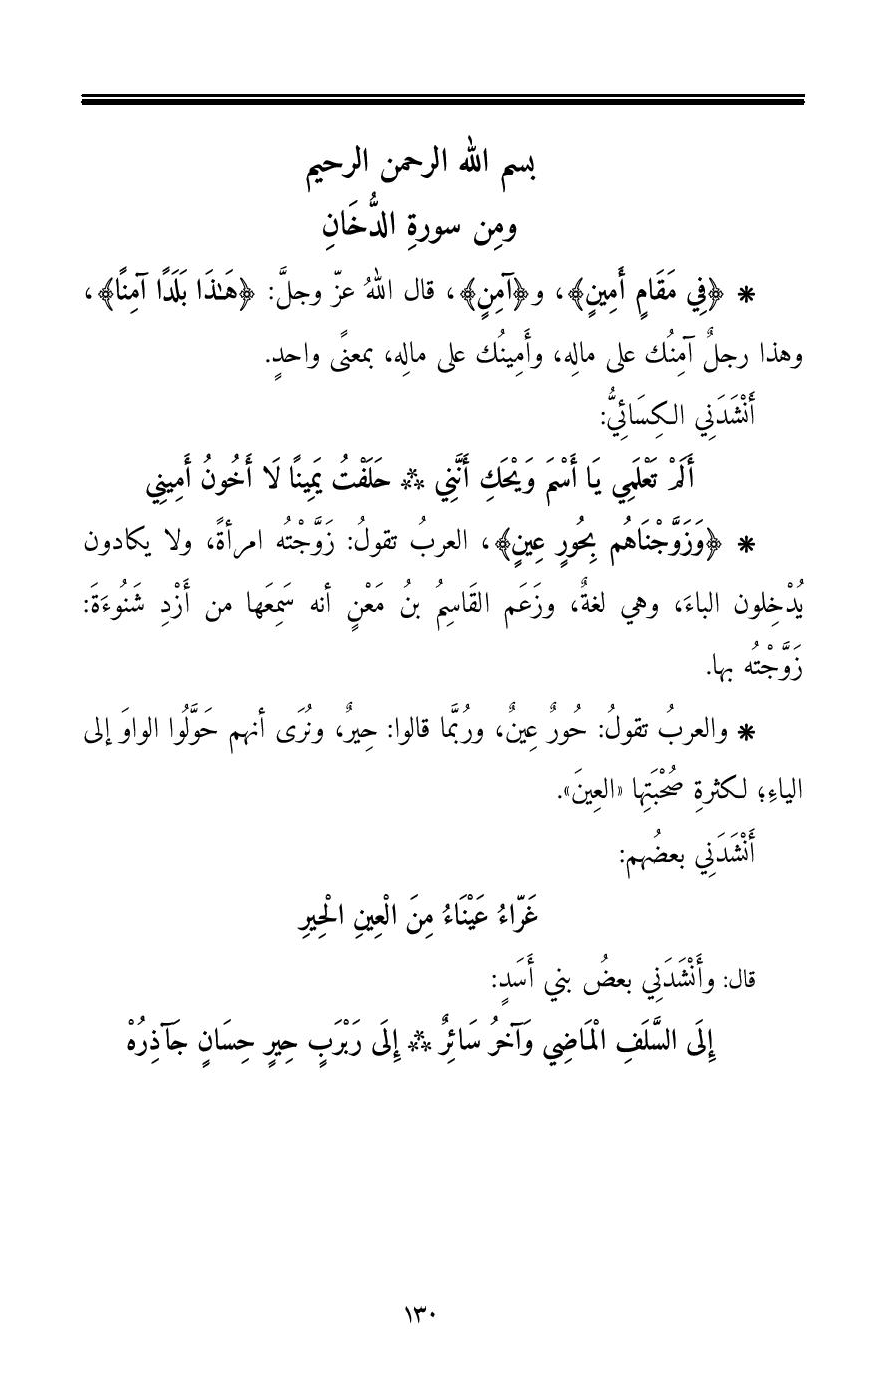 بسم الله الرحمن الرحيم
ومِن سورةِ الدُّخَانِ
* ﴿فِي مَقَامٍ أَمِينٍ﴾، و﴿آمِنٍ﴾، قال اللهُ عزّ وجلَّ: ﴿هَـٰذَا بَلَدًا آمِنًا﴾،
وهذا رجلٌ آمِنُك على مالِه، وأَمِينُك على مالِه، بمعنًى واحدٍ.
أَنْشَدَنِي الكِسَائِيُّ:
أَلَمْ تَعْلَمِي يَا أَسْمَ وَيْحَكِ أَنَّنِي ** حَلَفْتُ يَمِينًا لَا أَخُونُ أَمِينِي
* ﴿وَزَوَّجْنَاهُم بِحُورٍ عِينٍ﴾، العربُ تقولُ: زَوَّجْتُه امرأةً، ولا يكادون
يُدْخِلون الباءَ، وهي لغةٌ، وزَعَم القَاسِمُ بنُ مَعْنٍ أنه سَمِعَها من أَزْدِ شَنُوءَةَ:
زَوَّجْتُه بها.
* والعربُ تقولُ: حُورٌ عِينٌ، ورُبَّما قالوا: حِيرٌ، ونُرَى أنهم حَوَّلُوا الواوَ إلى
الياءِ؛ لكثرةِ صُحْبَتِها «العِينَ».
أَنْشَدَنِي بعضُهم:
غَرَّاءُ عَيْنَاءُ مِنَ الْعِينِ الْحِيرِ
قال: وأَنْشَدَنِي بعضُ بني أَسَدٍ:
إِلَى السَّلَفِ الْمَاضِي وَآخرُ سَائِرٌ ** إِلَى رَبْرَبٍ حِيرٍ حِسَانٍ جَآذِرُهْ
١٣٠